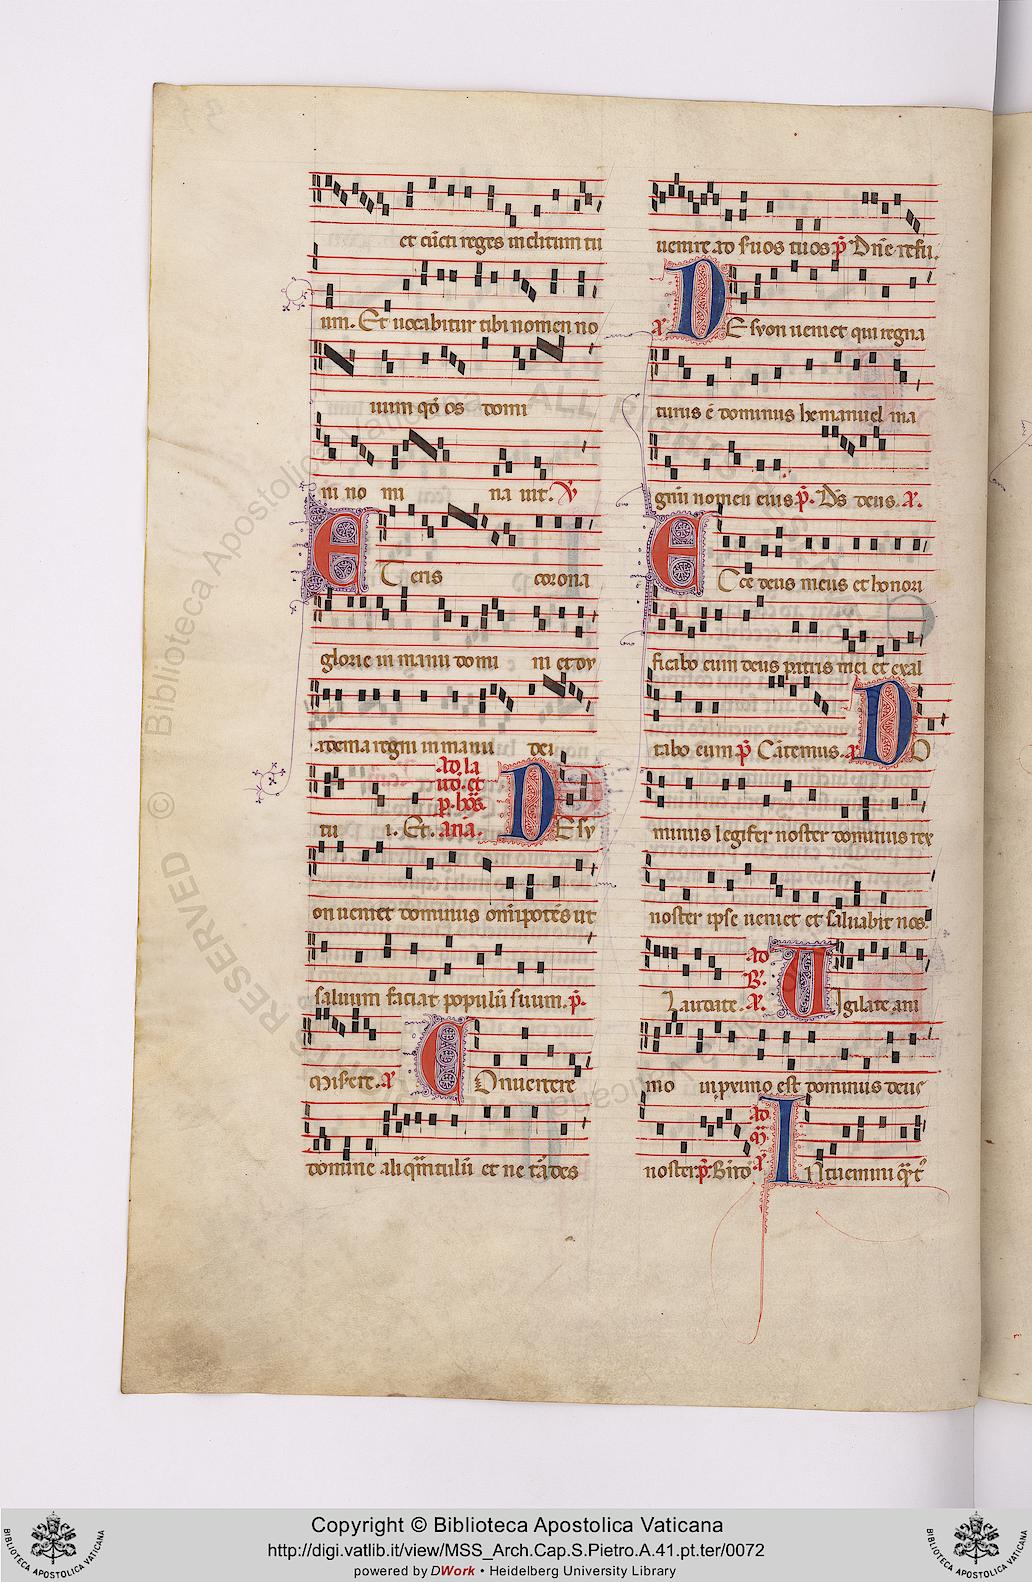 et cūcti reges inclitum tu
um. Et uocabitur tibi nomen no
uum qđ os domi
ni no mi na uit. ℣
ET eris corona
glorie in manu domi ni et dy
adema regni in manu dei
ad la
ud. et
p. hōs.
tu i. Et. anā. DE sy
on ueniet dominus omīpotēs ut
saluum faciat populū suum. p̄.
Misere. A. COnuertere
domine aliqūntulū et ne tādes
uenire ad suos tuos p̄ Dn̄e refu.
A. DE syon ueniet qui regna
turus ē dominus hemanuel ma
gnū nomen eius p̄. Ds̄ deus. A.
ECce deus meus et honori
ficabo eum deus patris mei et exal
tabo eum p̄ Cātemus. A. DO
minus legifer noster dominus rex
noster ipse ueniet et saluabit nos.
ad
B.
Laudate. A. VIgilate ani
mo in proximo est dominus deus
ad
M
noster. p̄. Bn̄dō A INtuemini qūt
Copyright © Biblioteca Apostolica Vaticana
http://digi.vatlib.it/view/MSS_Arch.Cap.S.Pietro.A.41.pt.ter/0072
powered by DWork • Heidelberg University Library
BIBLIOTECA APOSTOLICA VATICANA
BIBLIOTECA APOSTOLICA VATICANA